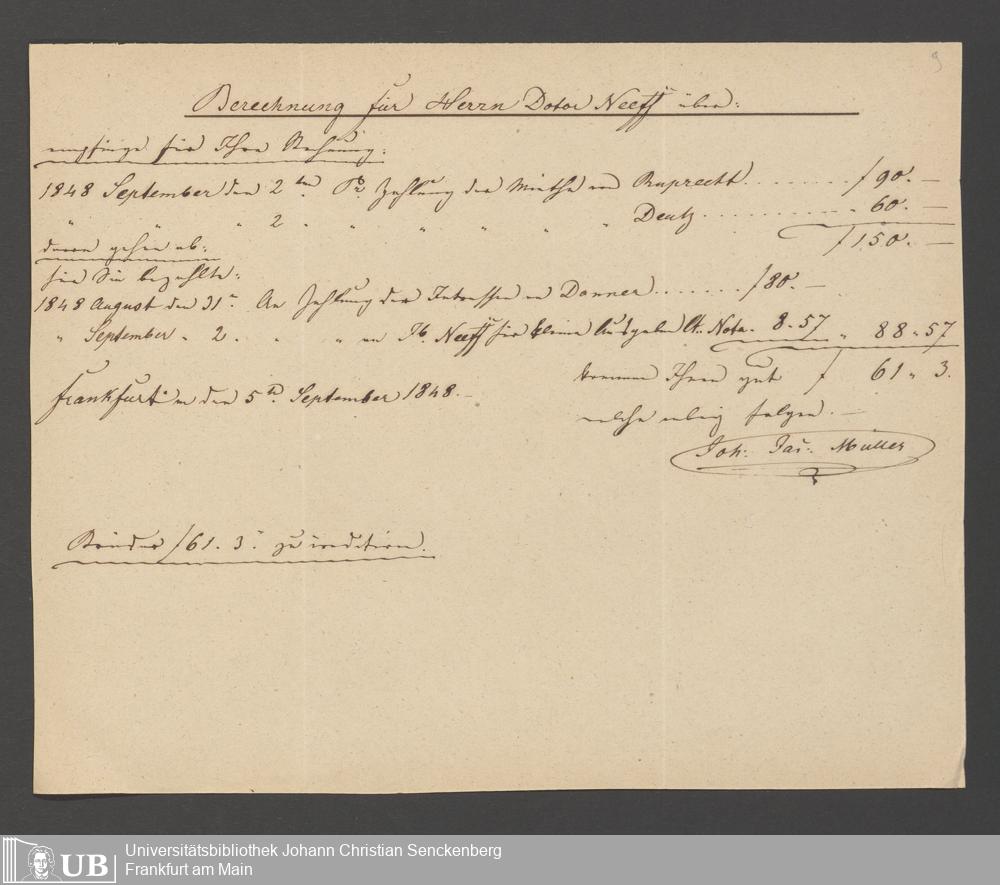 9
Berechnung für Herrn Dotor Neeff über:
empfinge für Ihre Rechnung:
1848 September den 2ten Pr Zahlung der Miethe von Ruprecht........ f 90.—
" " 2 " " " " " Deutz.......... " 60.—
f 150.—
davon gehen ab:
für Sie bezahlte:
1848 August den 31t An Zahlung der Interessen an Donner....... f 80.—
" September " 2. " " an Neeff für kleine Ausgaben lt. Nota. 8.57 " 88.57
kommen Ihnen gut f 61 " 3.
Frankfurt a/m den 5t September 1848.—
welche anbey folgen.—
Joh: Jac: Müller
f 61.3.
UB
Universitätsbibliothek Johann Christian Senckenberg
Frankfurt am Main